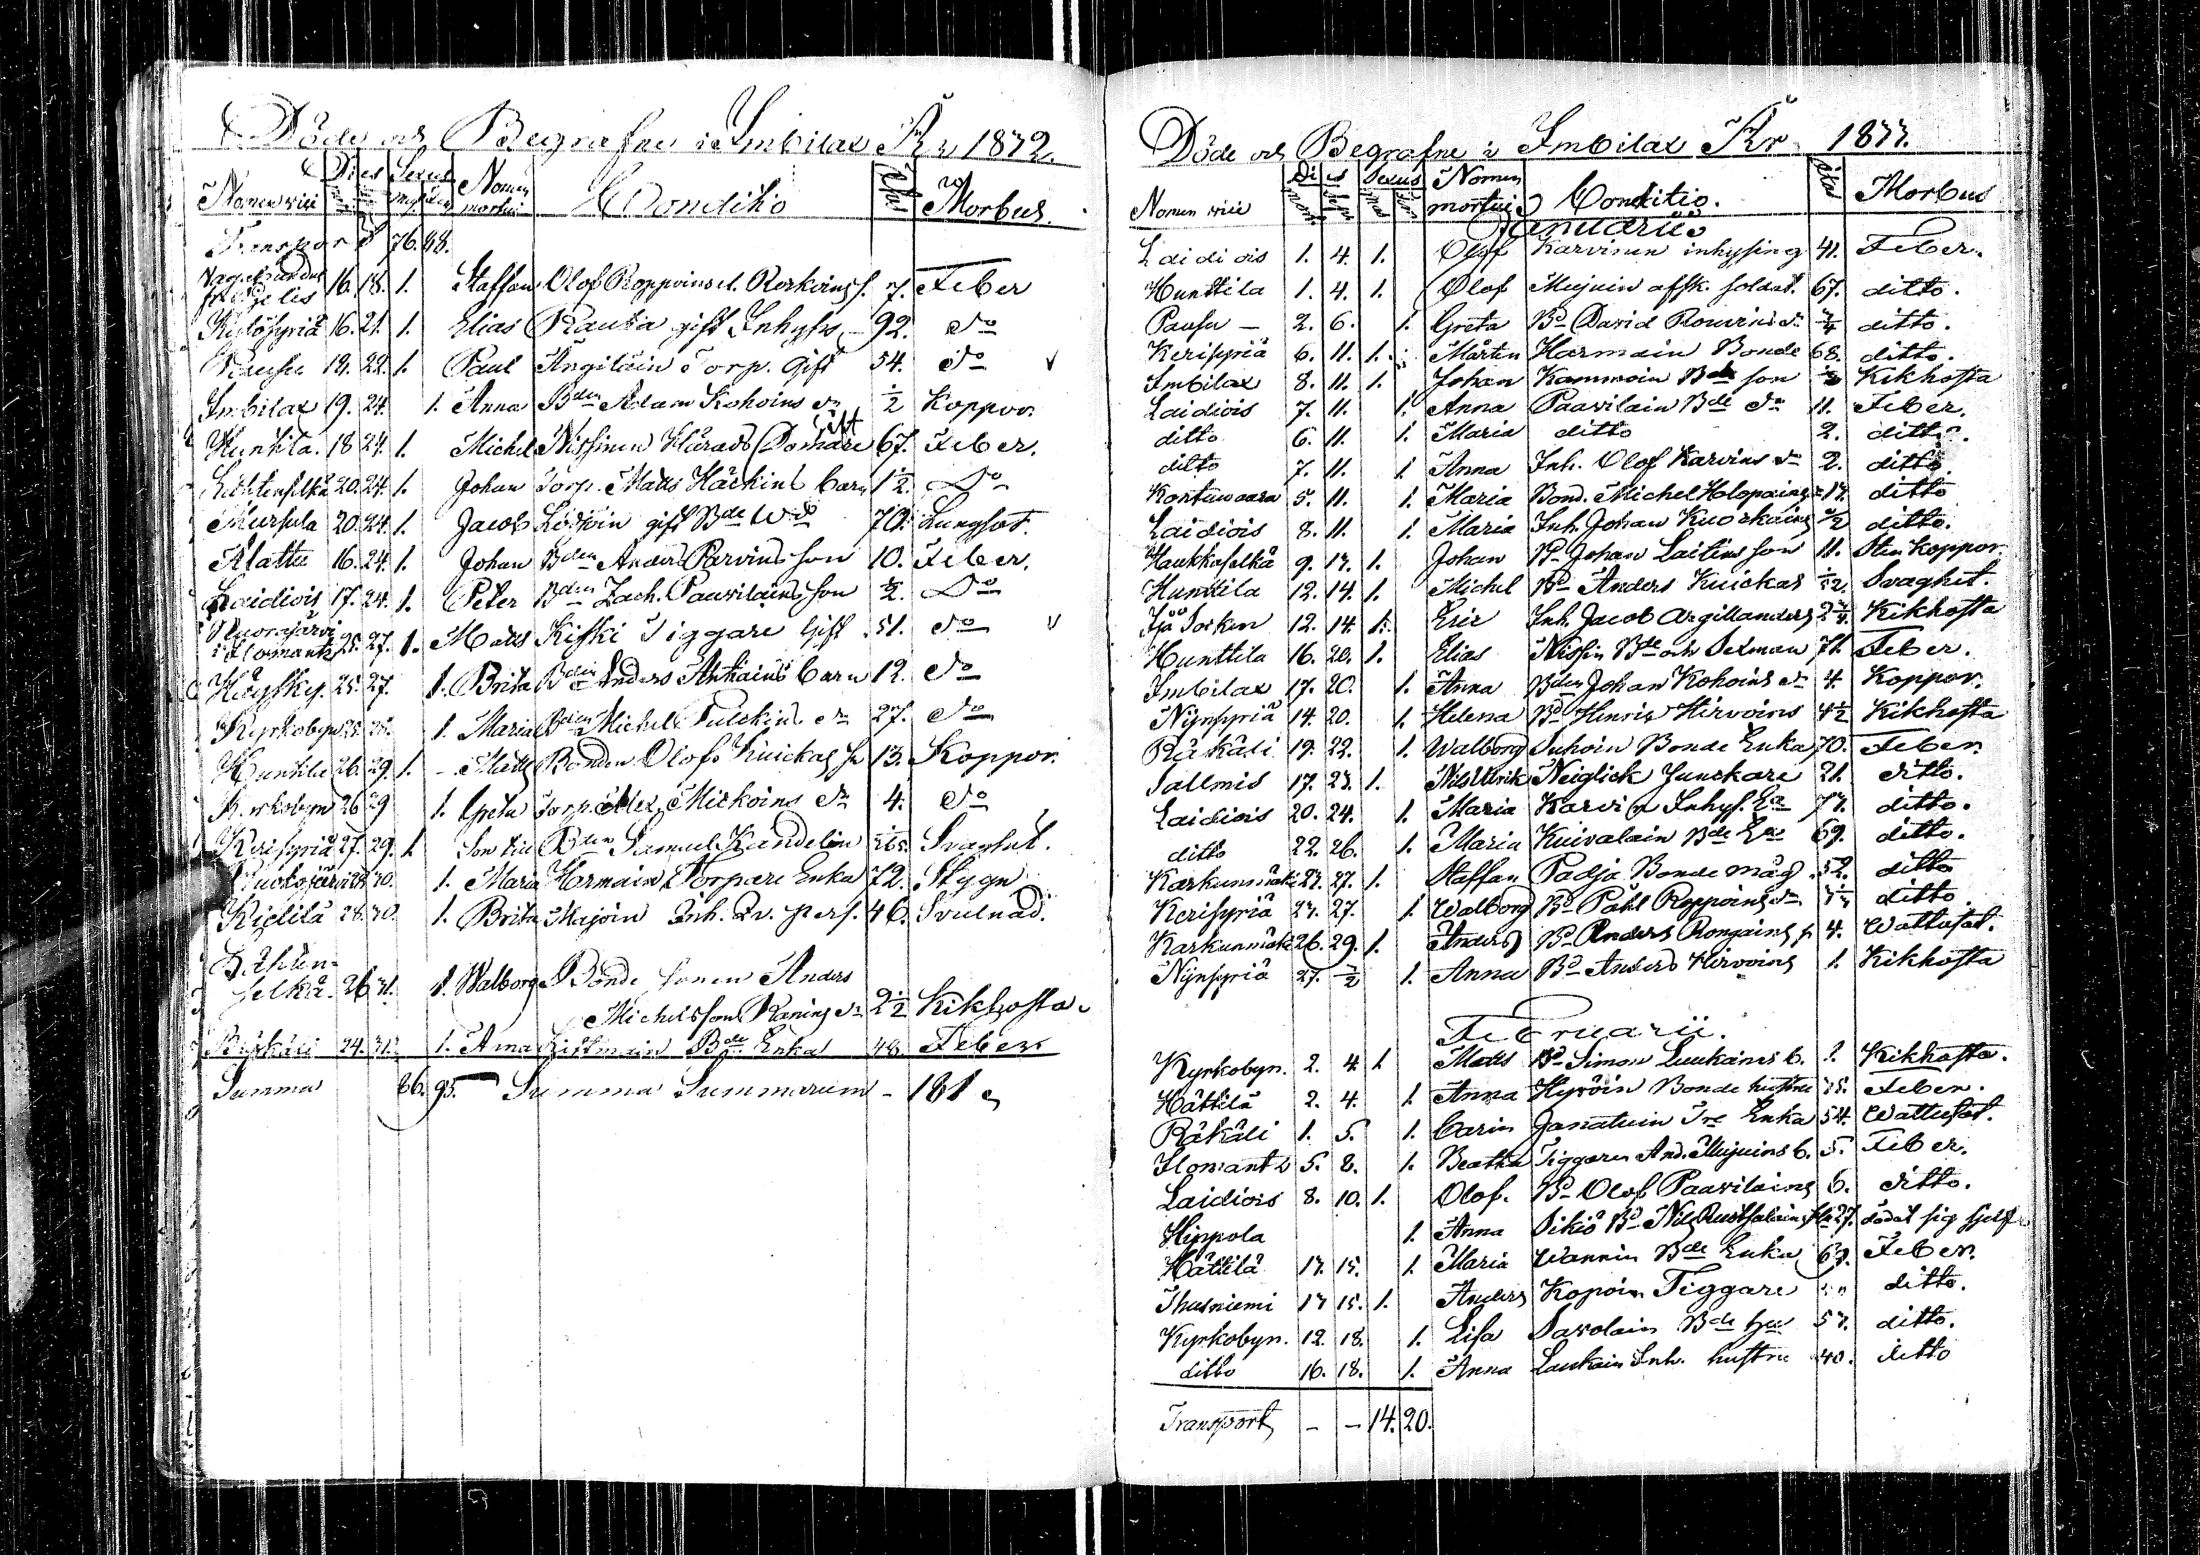 Döde och Begrafne i Imbilax År 1832.
Nomen vici Dies Sexus Nomen mortui Conditio Ætas Morbus.
Transport 76. 88.
16. 18. 1. Staffan Olof Roppoinens 7. Feber
Kitösyriä 16. 21. 1. Elias Rautia gift Inhyses 92. do
Pausu 19. 22. 1. Paul Ångiläin Torp. Gift 54. do
Imbilax 19. 24. 1. Anna Bden Adam Kohoins dr ½ Koppor.
Hunttila. 18 24. 1. Michel Nissinen Härads Domare Gift 67. Feber.
20. 24. 1. Johan Torp. Matts Häckins barn 1½. Do
Mursula 20. 24. 1. Jacob gift Bde 70. Lungsot.
Alattu 16. 24. 1. Johan Bden Anders Parvins son 10. Feber.
Laidiois 17. 24. 1. Peter Bden Zach. Paavilains son ½. Do
i Ilomants 25. 27. 1. Matts Kiiski Tiggare Gift 51. do
25. 27. 1. Brita Bden Anders Antkains barn 12. do
Kyrkobyn 25. 1. Maria Bden Michel Pulckins dr 27. do
Hunttila 26. 29. 1. Matts Bonden Olof Kuickas sn 13. Koppor.
Kyrkobyn 26 29 1. Greta Torp. Alex. Mickoins dr 4. do
Kerisyriä 27. 29. 1. Son till Bden Samuel Kandelin Svaghet.
30. 1. Maria Hermain Torpare Enka 72. Stygn
Kiditä 28. 30. 1. Brita Majoin Inh. Qv. pers. 46. Svulnad.
selkä. 26. 31. 1. Walborg Bonde sonen Anders
Michelsson Ranins dr 2½ Kikhosta
Räkäli 24. 31. 1. Anna Bde Enka 48. Feber
Summa 86. 95. Summa Summarum - 181
Döde och Begrafne i Imbilax År 1833.
Nomen vici Dies Sexus Nomen mortui Conditio. Ætas Morbus
Januarii
Laidiois 1. 4. 1. Olof Karvinen inhysing 41. Feber.
Hunttila 1. 4. 1. Olof Mujuin affsk. soldat. 67. ditto.
Pausu - 2. 6. 1. Greta Bd David Rouvins dr ¾ ditto.
Kerisyriä 6. 11. 1. Mårten Harmain Bonde 68. ditto.
Imbilax 8. 11. 1. Johan Kammoin Bde son Kikhosta
Laidiois 7. 11. 1. Anna Paavilain Bde dr 11. Feber.
ditto 6. 11. 1. Maria ditto 2. ditto.
ditto 7. 11. 1 Anna Inh. Olof Karvins dr 2. ditto.
Kortunvaara 5. 11. 1. Maria Bond. Michel Holopains ditto
Laidiois 8. 11. 1. Maria Inh. Johan Kuorkains ditto.
Haukkaselkä 9. 13. 1. Johan Bd Johan Laitins son 11. Sten koppor.
Hunttila 12. 14. 1. Michel Bd Anders Kuickas Svaghet.
12. 14. 1. Eric Inh. Jacob Argillanders 2¾. Kikhosta
Hunttila 16. 20. 1. Elias Nissin Bde och Sexman 71. Feber.
Imbilax 17. 20. 1. Anna Bden Johan Kohoins dr 4. Koppor.
Nijnsyriä 14. 20. 1. Helena Bd Henric Hirvoins 4½ Kikhosta
Räkäli 19. 22. 1. Walborg Suhoin Bonde Enka 70. Feber.
Sallmis 17. 23. 1. Nils Ulrik Neiglick Junckare 21. ditto.
Laidiois 20. 24. 1. Maria Karvin Inhys. Ea 73. ditto.
ditto 22. 26. 1. Maria Kuivalain Bde Ea 69. ditto.
Karkunmäki 23. 27. 1. Staffan Padja Bonde måg 52. ditto
Kerisyriä 23. 27. 1. Walborg Bd Påhl Roppoins dr ditto.
Karkunmäki 26. 29. 1. Anders Bd Anders Rongains 4. Wattusot.
Nijnsyriä 27. 1. Anna Bd Anders Hirvoins 1. Kikhosta
Februarii.
Kyrkobyn. 2. 4. 1 Matts Bd Simon Luukains b. Kikhosta.
Hättilä 2. 4. 1. Anna Hyvöin Bonde hustru 75. Feber.
Räkäli 1. 5. 1. Carin Janatuin Tre Enka 54. Wattusot.
Ilomants 5. 8. 1. Beatha Tiggaren And. Mujuins b. 5. Feber.
Laidiois 8. 10. 1. Olof. Bd Olof Paavilains 6. ditto.
Hippola 1. Anna Sikiö Bd Nils 27. dödat sig sjelf
Hättilä 13. 15. 1. Maria Wannin Bde Enka 63. Feber.
Ihasniemi 13 15. 1. Anders Kopoin Tiggare ditto.
Kyrkobyn. 12. 18. 1. Lisa Savolain Bde hu 53. ditto.
ditto 16. 18. 1. Anna Laukain Inh. hustru 40. ditto
Transport - - 14. 20.